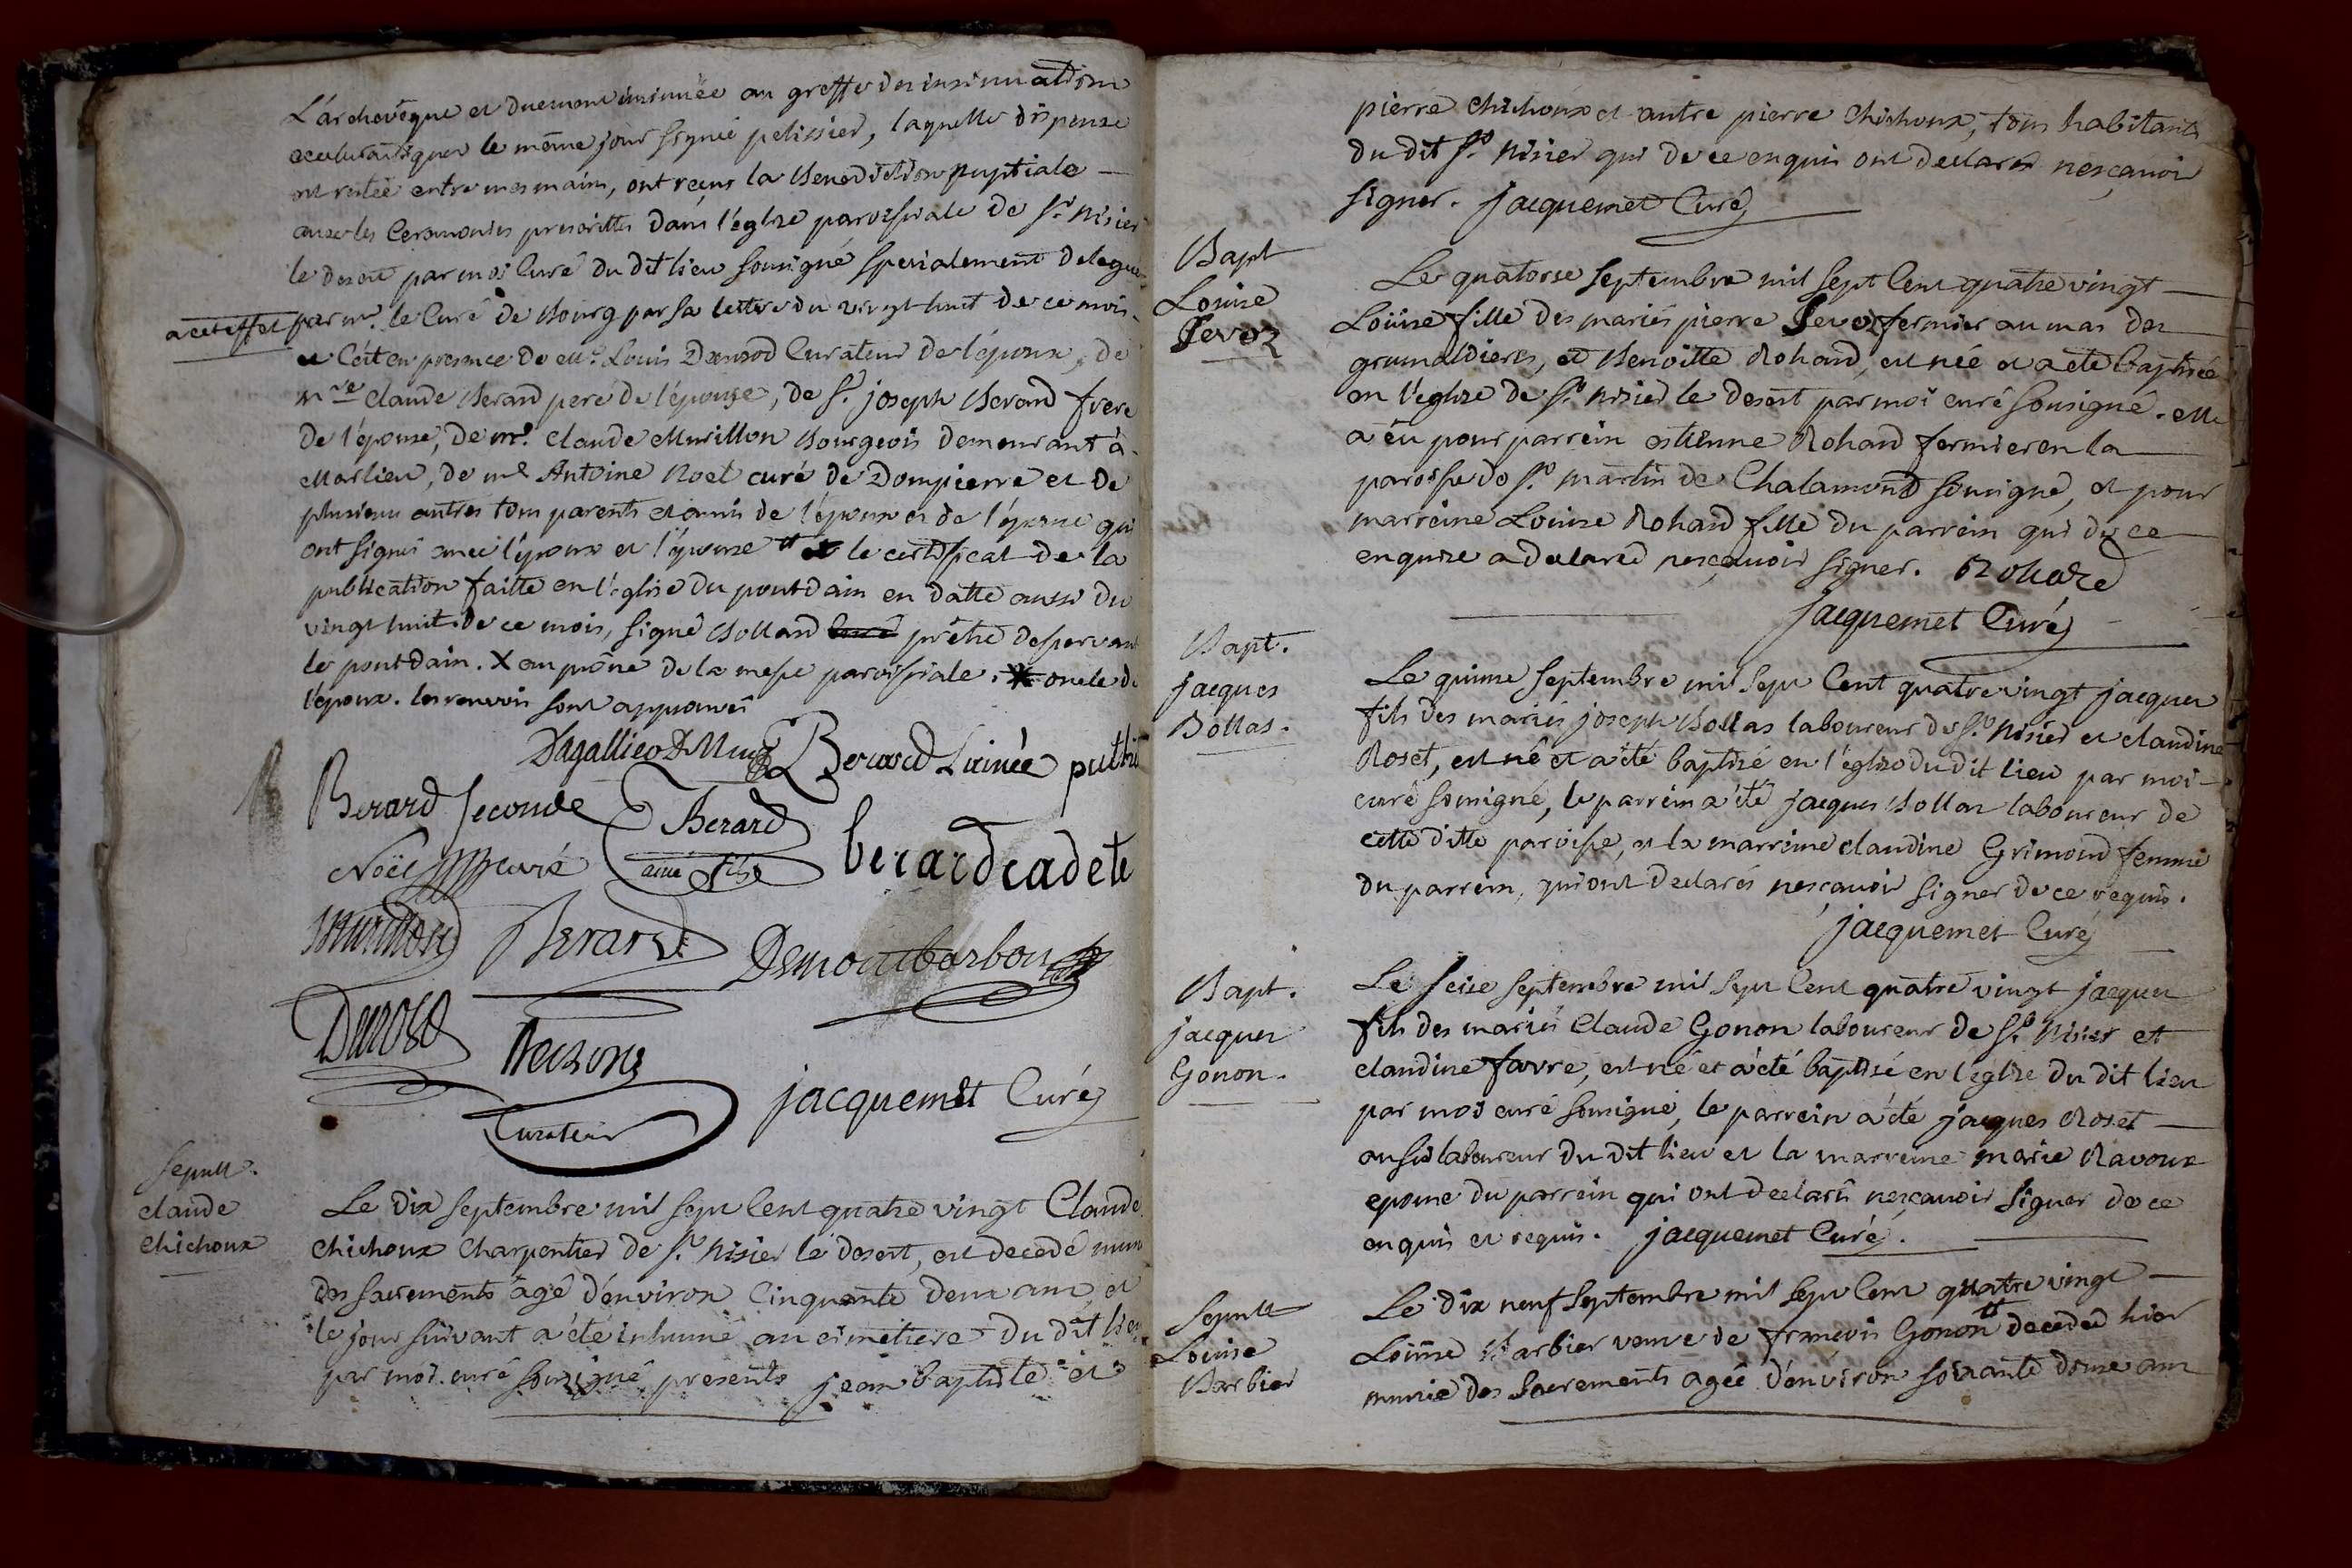 L'archevêque et duement insinuée au greffe des insinuations
ecclesiastiques le même jour signée pelissier, laquelle dispense
est restée entre mes mains, ont reçus la Benediction nuptiale
avec les Ceremonies prescrittes dans l'église paroissiale de st. nisier
le desert par moi Curé du dit lieu sousigné specialement delegué
a cet effet par mr. le Curé de Bourg par sa lettre du vingt huit de ce mois.
et C'est en presence de mr. Louis Curateur de l'époux, de
mre claude Berard pere de l'épouse, de sr. joseph Berard frere
de l'épouse, de mr. claude Murillon Bourgeois demeurant à
Marlieu, de mr Antoine Noel curé de Dompierre et de
plusieurs autres tous parents et amis de l'époux et de l'épouse qui
ont signés avec l'époux et l'épouse tt le certificat de la
publication faitte en l'église du pontdain en datte aussi du
vingt huit de ce mois, signé Bolland prêtre desservant
le pontdain. X au prône de la messe paroissiale. * oncle de
l'époux. les renvois sont approuvés
Berard Lainée
Berard seconde
Berard
ainé fils
berard cadete
Noël curé
Murillon
Berard
Demontbarbon
Curateur
jacquemet Curé
Sepult.
claude
chichoux
Le dix septembre mil sept Cent quatre vingt Claude
chichoux Charpentier de st. Nisier le desert, est decedé muni
des sacrements agé d'environ Cinquante deux ans, et
le jour suivant a été inhumé au cimetiere du dit lieu
par moi curé sousigné presents jean baptiste et
pierre chichoux et autre pierre chichoux, tous habitants
du dit st. Nisier qui de ce enquis ont declarés nesçavoir
signer. jacquemet Curé
Bapt
Louise
Jevoz
Le quatorse septembre mil sept Cent quatre vingt
Louise fille des mariés pierre Jevoz fermier au mas des
grimaldieres, et Benoitte Rohard, est née et a été baptisée
en l'église de st. nisier le desert par moi curé sousigné. elle
a eu pour parrein estienne Rohard fermier en la
paroisse de st. martin de Chalamond sousigné, et pour
marreine Louise Rohard fille du parrein qui de ce
enquise a declaré nesçavoir signer. Rohard
jacquemet Curé
Bapt.
jacques
Bollas.
Le quinse septembre mil sept Cent quatre vingt jacques
fils des mariés joseph Bollas laboureur de st. Nisier et claudine
Roset, est né et a été baptisé en l'église du dit lieu par moi
curé sousigné, le parrein a été jacques Bollas laboureur de
cette ditte paroisse, et la marreine claudine Grimond femme
du parrein, qui ont declarés nesçavoir signer de ce requis.
jacquemet Curé
Bapt.
jacques
Gonon.
Le seise septembre mil sept Cent quatre vingt jacques
fils des mariés Claude Gonon laboureur de st. Nisier et
claudine favre, est né et a été baptisé en l'église du dit lieu
par moi curé sousigné, le parrein a été jacques Roset
aussi laboureur du dit lieu et la marreine marie Ravoux
epouse du parrein qui ont declarés nesçavoir signer de ce
enquis et requis. jacquemet Curé.
Sepult
Louise
Barbier
Le dix neuf septembre mil sept Cent quatre vingt
Louise Barbier veuve de françois Gonon tt decedée hier
munie des sacrements agée d'environ soixante douse ans